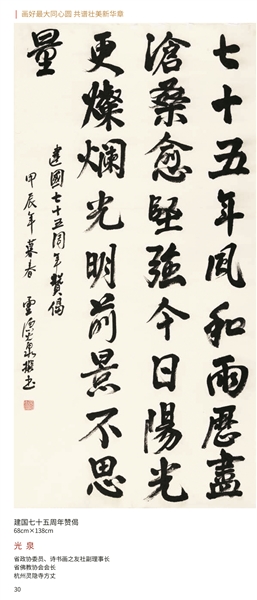 画好最大同心圆 共谱壮美新华章
七十五年风和雨歷盡
滄桑愈堅強今日陽光
更燦爛光明前景不思
量
建國七十五周年贊偈
甲辰年暮春 光泉撰书
建国七十五周年赞偈
68cm×138cm
光 泉
省政协委员、诗书画之友社副理事长
省佛教协会会长
杭州灵隐寺方丈
30